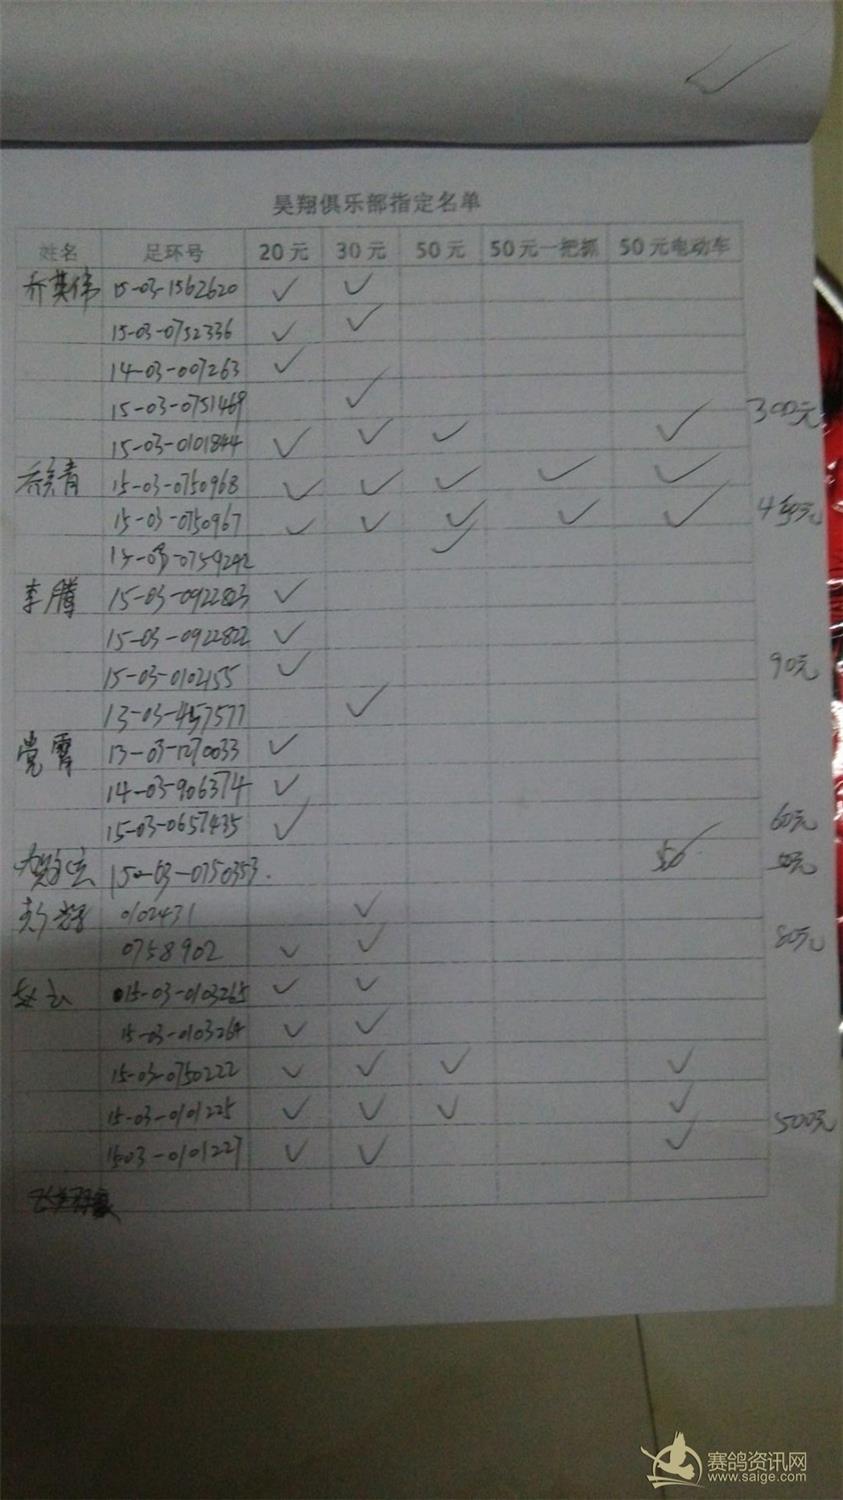 昊翔俱乐部指定名单
姓名 足环号 20元 30元 50元 50元一把抓 50元电动车
乔英伟 15-03-1562620 ✓ ✓
15-03-0752336 ✓ ✓
14-03-007263 ✓
15-03-0751469 ✓ 300元
15-03-0101844 ✓ ✓ ✓ ✓
15-03-0750968 ✓ ✓ ✓ ✓ ✓
15-03-0750967 ✓ ✓ ✓ ✓ ✓ 元
15-03-0759242 ✓
李腾 15-03-0922823 ✓
15-03-0922822 ✓
15-03-0102155 ✓ 90元
13-03-457577 ✓
党霄 13-03-1270033 ✓
14-03-906374 ✓
15-03-0657435 ✓ 60元
15-03-0750353. 50 50元
0102431 ✓
0758902 ✓ ✓ 80元
15-03-0103265 ✓ ✓
15-03-0103264 ✓ ✓
15-03-0750222 ✓ ✓ ✓ ✓
15-03-0101225 ✓ ✓ ✓ ✓ 500元
1503-0101227 ✓ ✓ ✓
赛鸽资讯网
www.saige.com